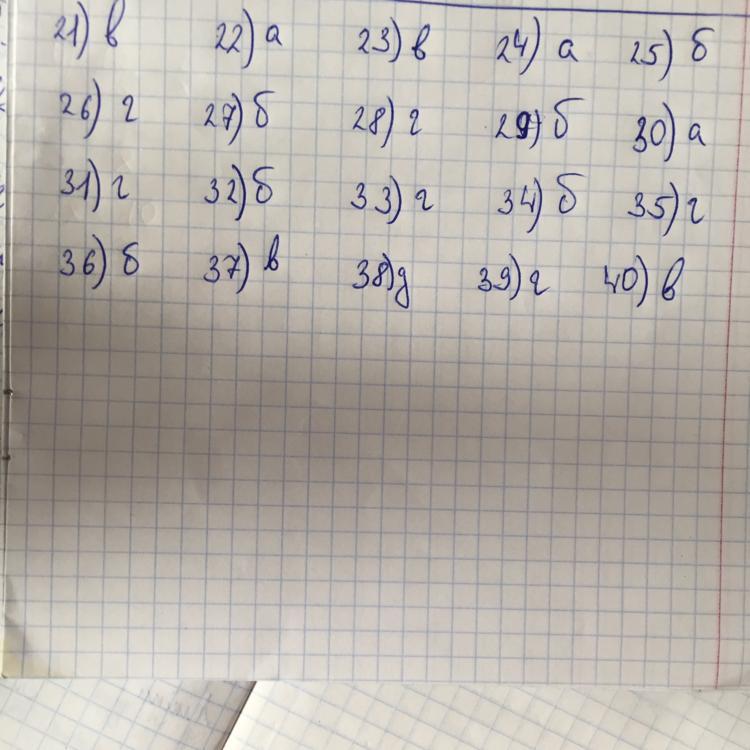 21) в 22) а 23) в 24) а 25) б
26) г 27) б 28) г 29) б 30) а
31) г 32) б 33) г 34) б 35) г
36) б 37) в 38) д 39) г 40) в